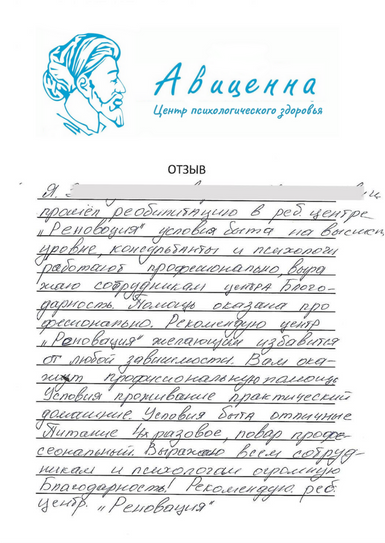 Авиценна
Центр психологического здоровья
ОТЗЫВ
Я,
прошёл реобититацию в реб. центре
„Реновация" условия быта на высшем
уровне, консультанты и психологи
работают професионально, выра
жаю сотрудникам центра Благо-
дарность. Помощь оказана про
фесионально. Рекомендую центр
„Реновация" желающим избавится
от любой зависимости. Вам ока-
жут професиональную помощь
Условия проживание практический
домашние. Условия быта отличные
Питание 4х разовое, повар профе-
сеональный. Выражаю всем сотруд-
никам и психологам огромную
Благодарность! Рекомендую реб.
центр. „Реновация"